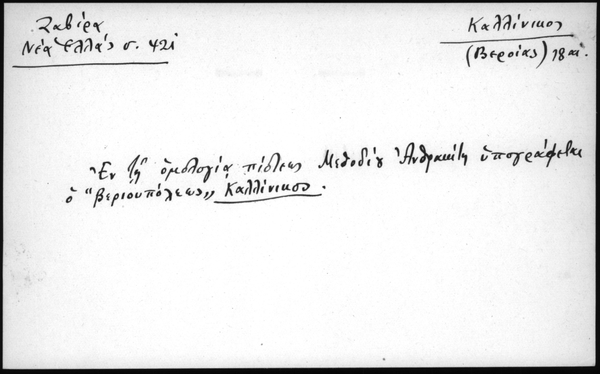 Ζαβίρα
Νέα Ἑλλάς σ. 421
Καλλίνικος
(Βεροίας) 18 αι.
Ἐν τῇ ὁμολογίᾳ πίστεως Μεθοδίου Ἀνθρακίτη ὑπογράφεται
ὁ "Βεριουπόλεως,, Καλλίνικος.